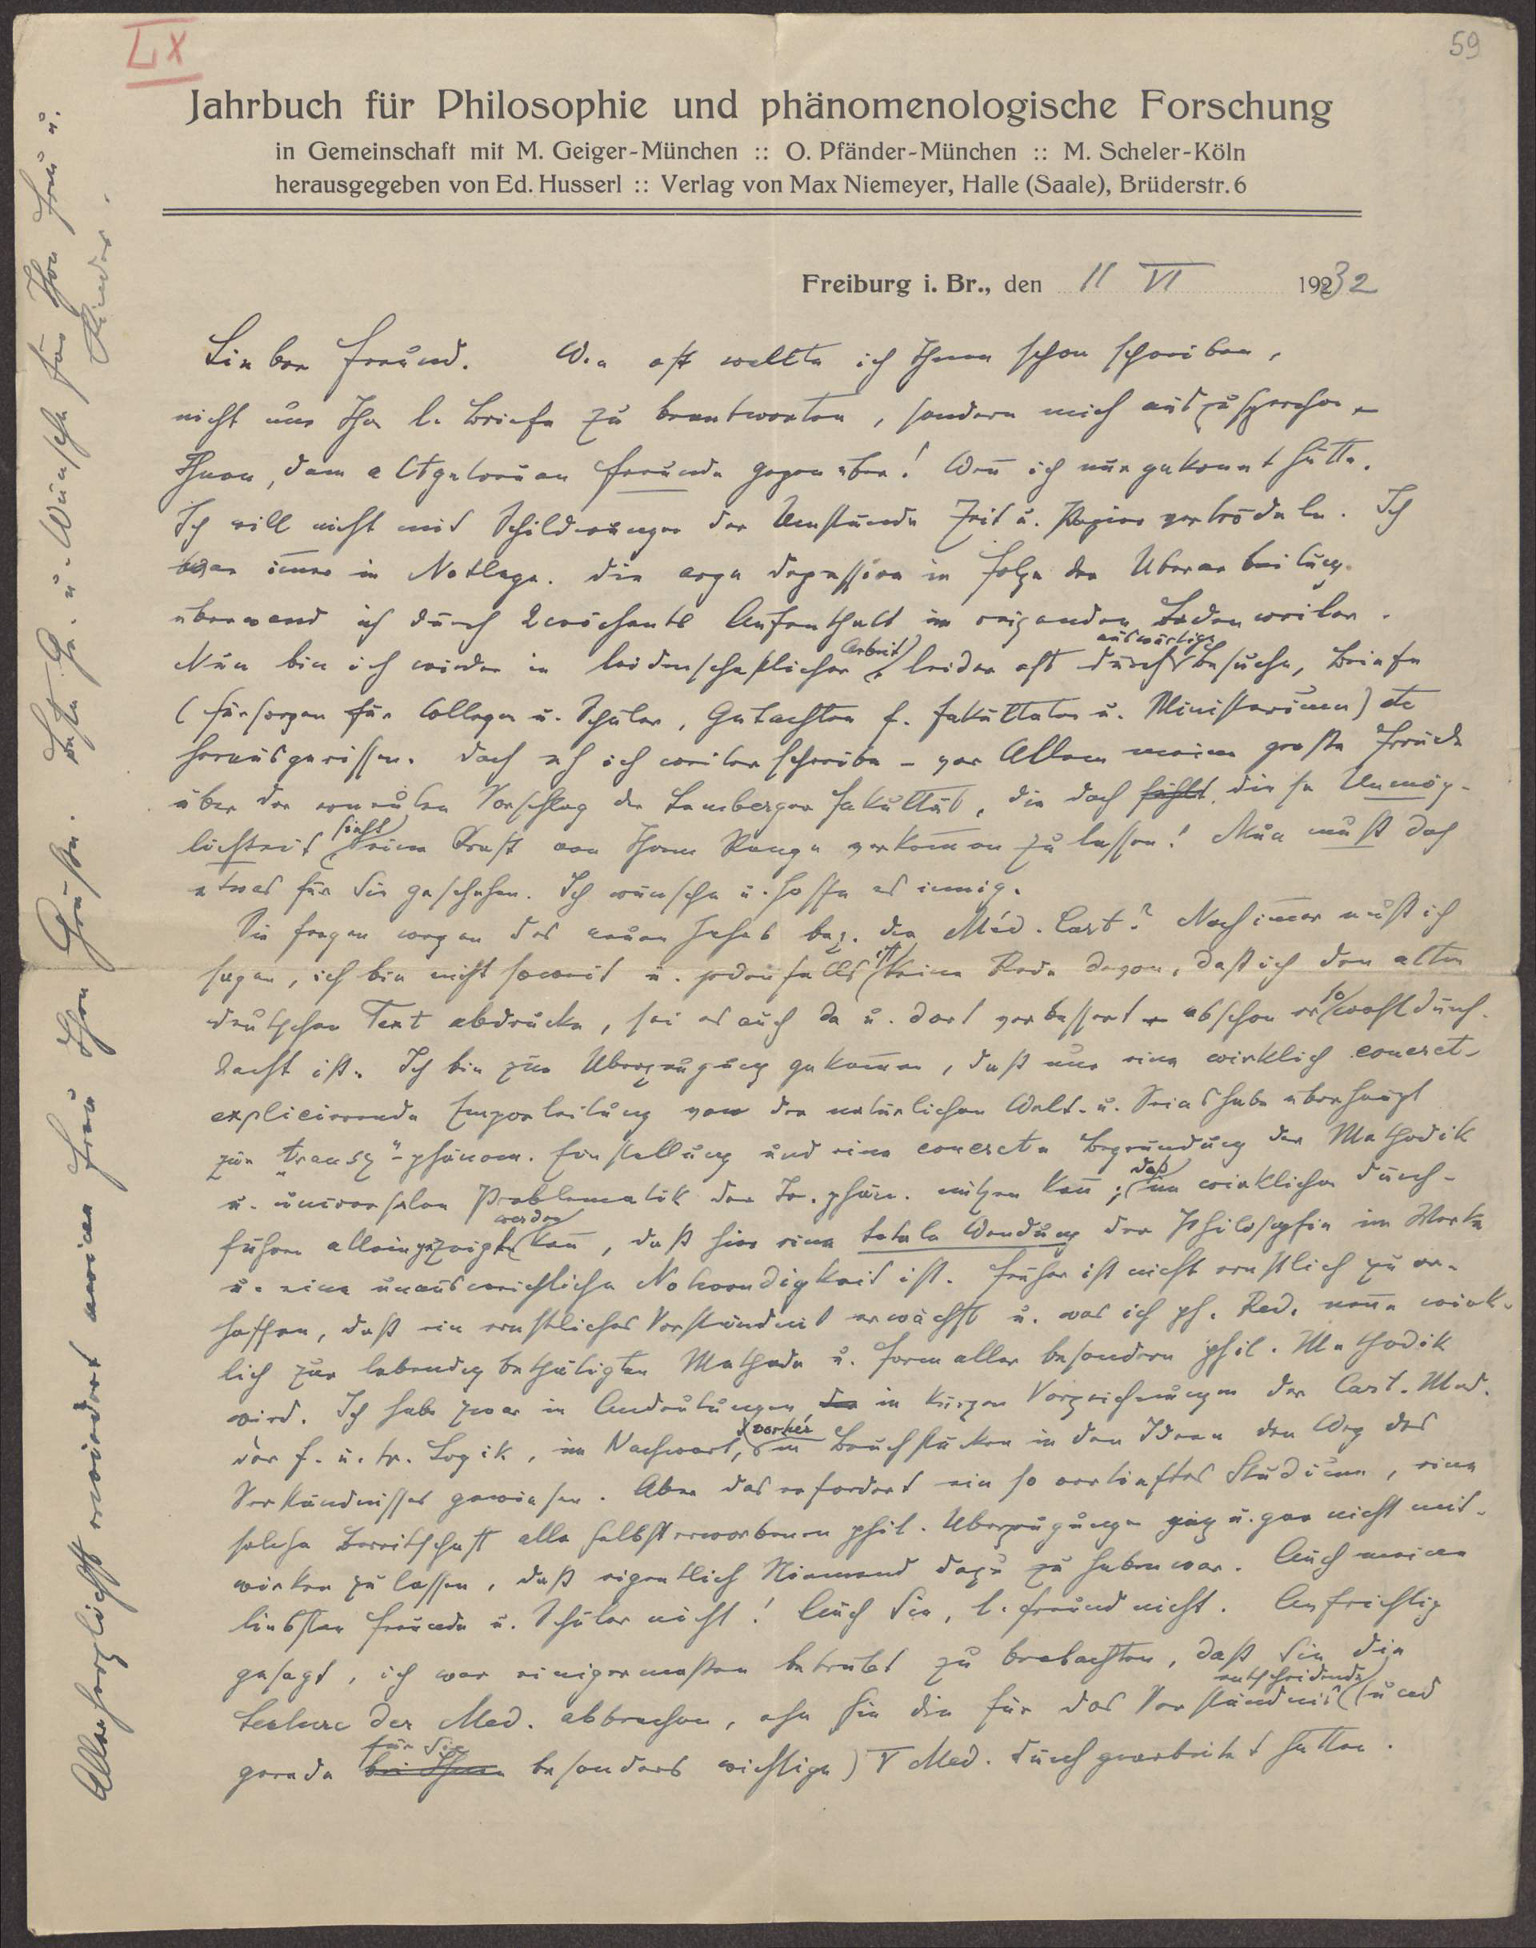 LX
59
Jahrbuch für Philosophie und phänomenologische Forschung
in Gemeinschaft mit M. Geiger-München :: O. Pfänder-München :: M. Scheler-Köln
herausgegeben von Ed. Husserl :: Verlag von Max Niemeyer, Halle (Saale), Brüderstr. 6
Freiburg i. Br., den 11 VI 1932
Lieber Freund. Wie oft wollte ich Ihnen schon schreiben,
nicht nur Ihre l. Briefe zu beantworten, sondern mich auszusprechen –
Ihnen, dem altgetreuen Freunde gegenüber! Wenn ich nur gekonnt hätte.
Ich will nicht mit Schilderungen der Umstände Zeit u. Papier vertrödeln. Ich
war immer in Notlage. Die arge Depression in Folge der Überarbeitung
überwand ich durch 2wöchentl Aufenthalt im reizenden Badenweiler.
Nun bin ich wieder in leidenschaftlicher Arbeit, leider oft durch auswärtige Besuche, Briefe
(Fürsorgen für Collegen u. Schüler, Gutachten f. Fakultäten u. Ministerium) etc
herausgerissen. Doch eh ich weiter schreibe – vor Allem meine große Freude
über den erneuten Vorschlag der Lemberger Fakultät, die doch fühlt, diese Unmög-
lichkeit sieht, eine Kraft von Ihrem Range verkommen zu lassen! Nun muß doch
etwas für Sie geschehen. Ich wünsche u. hoffe es innig.
Sie fragen wegen des neuen Jahrb bez. der Méd. Cart? Noch immer muß ich
sagen, ich bin nicht soweit u. jedenfalls ist keine Rede davon, daß ich den alten
deutschen Text abdrucke, sei er auch da u. dort verbessert – obschon er so wohl durch-
dacht ist. Ich bin zur Überzeugung gekommen, daß nur eine wirklich concret-
explicierende Emporleitung von der natürlichen Welt- u. Seinshabe überhaupt
zur "transz"-phänom. Einstellung und eine concrete Begründung der Methodik
u. universalen Problematik der Tr. phän. nützen kann; daß im wirklichen Durch-
führen allein gezeigt werden kann, daß hier eine totale Wendung der Philosophie im Werke
u. eine unausweichliche Notwendigkeit ist. Früher ist nicht ernstlich zu er-
hoffen, daß ein ernstliches Verständnis erwächst u. was ich ph. Red. nenne wirk-
lich zur lebendig bethätigten Methode u. Form aller besondern phil. Methodik
wird. Ich habe zwar in Andeutungen in kurzen Vorzeichnungen der Cart. Med.
der f. u. tr. Logik, im Nachwort, vorher in Bruchstücken in den Ideen den Weg des
Verständnisses gewiesen. Aber das erfordert ein so vertieftes Studium, eine
solche Bereitschaft alle selbsterworbenen phil. Überzeugungen ganz u. gar nicht mit-
wirken zu lassen, daß eigentlich Niemand dazu zu haben war. Auch meine
liebsten Freunde u. Schüler nicht! Auch Sie, l. Freund nicht. Aufrichtig
gesagt, ich war einigermaßen betrübt zu beobachten, daß Sie die
Lecture der Med. abbrechen, ehe Sie die für das Verständnis entscheidende (und
gerade bei Ihnen für Sie besonders wichtige) V Med. durchgearbeitet hatten.
Allerherzlichst erwidert meine Frau Ihre Grüße. Beste Gr. u. Wünsche für Ihre Frau u.
Kinder.